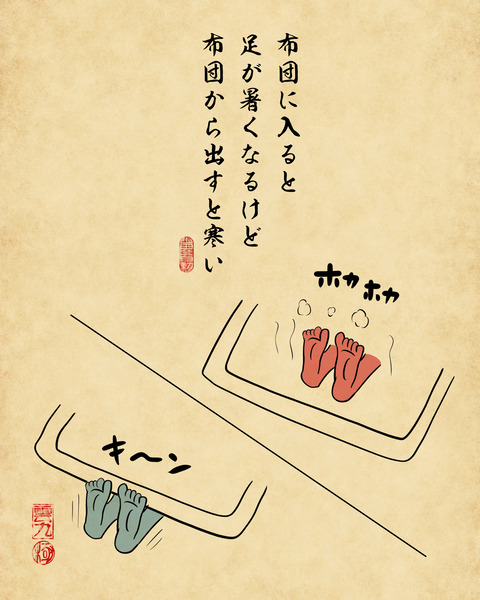 布団に入ると
足が暑くなるけど
布団から出すと寒い
ホカホカ
キ〜ン